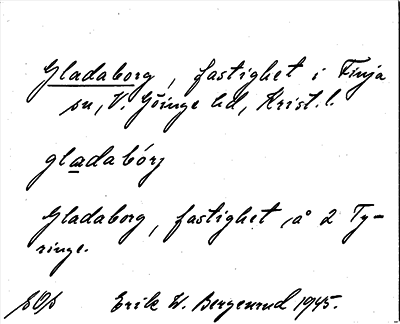 Gladaborg, fastighet i Finja
sn, V. Göinge hd, Krist. l.
gladabórj
Gladaborg, fastighet å 2 Ty-
ringe.
Erik W. Bergenrud 1945.